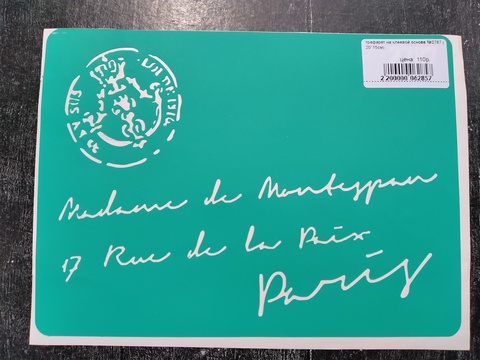 трафарет на клеевой основе
цена: 110р
2 200000 062857
Madame de Montespan
17 Rue de la Paix
Paris